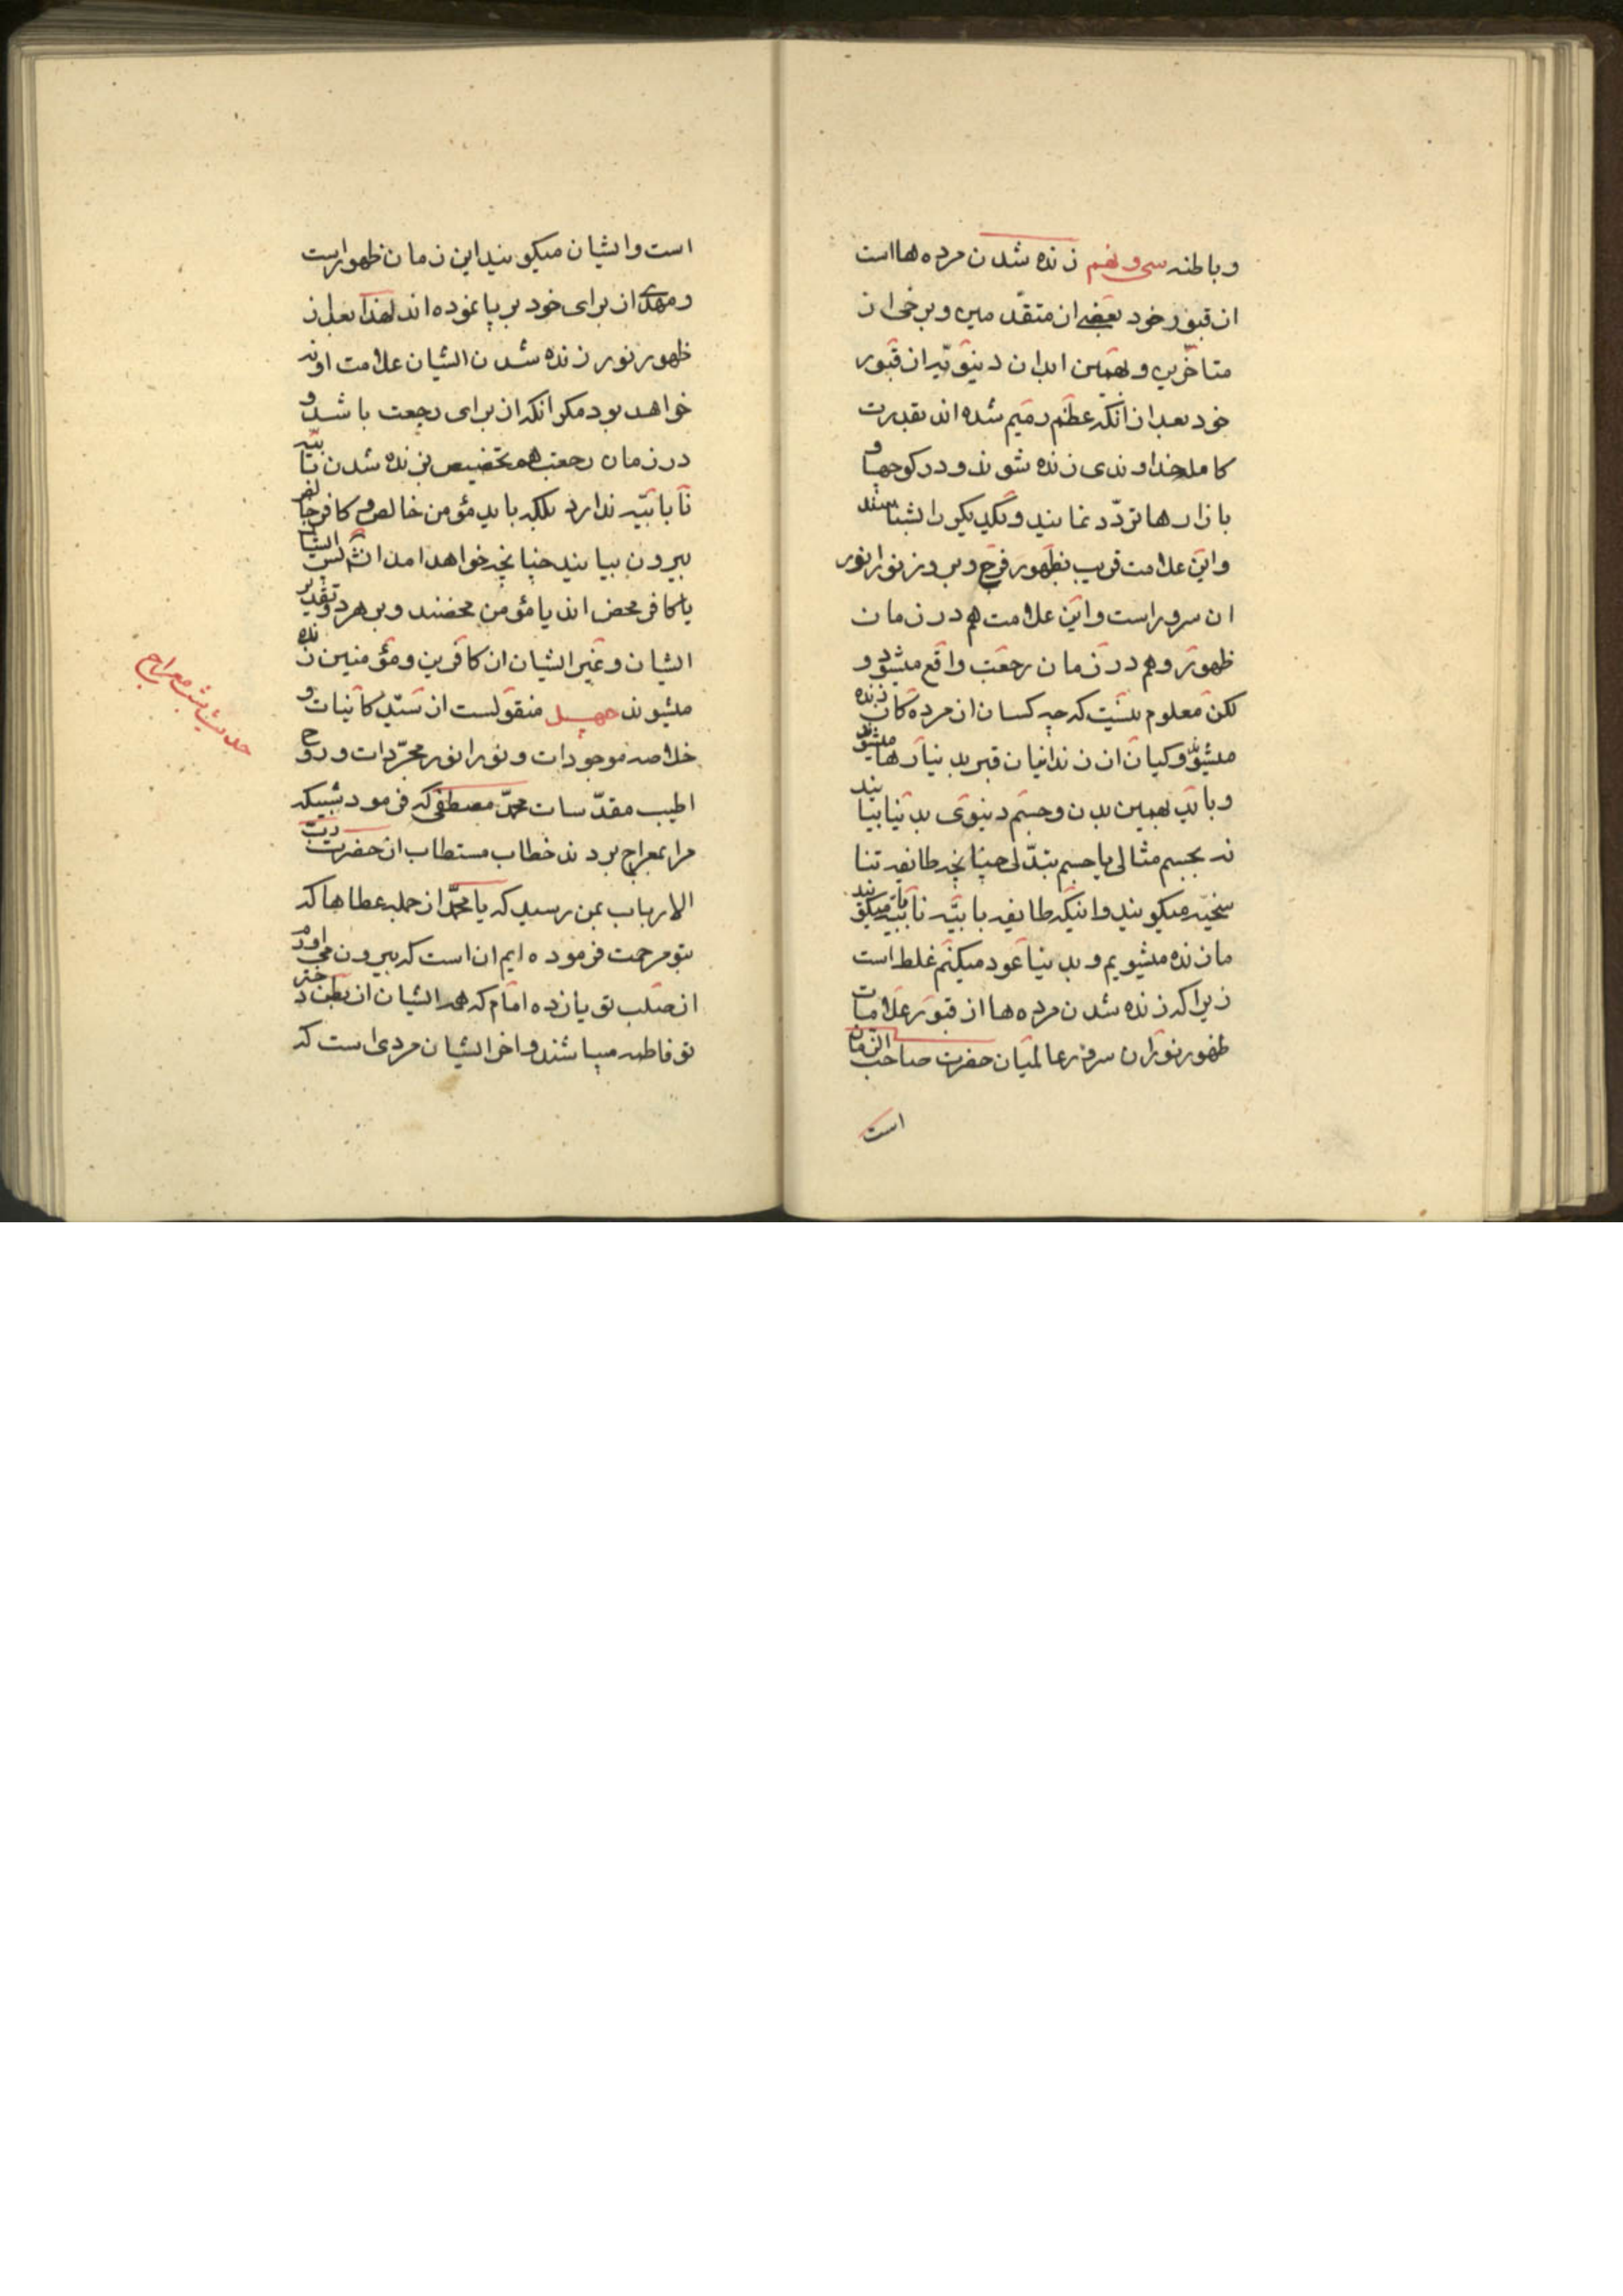 و باطنه سی و نهم زنده شدن مرده ها است
از قبور خود بعضی از متقدمین و برخی از
متاخرین و بهمین ابدان دنیویه از قبور
خود بعد از آنکه عظم رمیم شده اند بقدرت
کامله خداوندی زنده شوند و در کوچها و
بازارها تردّد نمایند و یکدیگر را بشناسند
و این علامت قریب بظهور فرج و بروز نور انور
آن سرور است و این علامت هم در زمان
ظهور و هم در زمان رجعت واقع میشود و
لکن معلوم نیست که چه کسان از مرده کان زنده
میشوند و کیان از زندانیان قبر بدنیا رها میشوند
و باید بهمین بدن و جسم دنیوی بدنیا بیایند
نه بجسم مثالی یا جسم تبدّلی چنانچه طایفه تنا
سخیّه میکویند و اینکه طایفه بابیّه نابابیّه میکویند
ما زنده میشویم و بدنیا عود میکنیم غلط است
زیرا که زنده شدن مرده ها از قبور علامات
ظهور نور آن سرور عالمیان حضرت صاحب الزمان
است
است و ایشان میکویند این زمان ظهور است
و مهدی از برای خود برپا نموده اند لهذا بعد از
ظهور نور زنده شدن ایشان علامت او نه
خواهد بود مکر آنکه از برای رجعت باشد و
در زمان رجعت هم تخصیص بزنده شدن بابیّه
نابابیّه ندارد بلکه باید مؤمن خالص و کافر
بیرون بیایند چنانچه خواهد آمد انش ایشان
یا کافر محض اند یا مؤمن محضند و بر هر دو تقدیر
ایشان و غیر ایشان از کافرین و مؤمنین زنده
میشوند چهل منقولست از سیّد کاینات و
خلاصه موجودات و نور انور مجرّدات و روح
اطیب مقدّسات محمّد مصطفی که فرمود شبیکه
مرا بمعراج بردند خطاب مستطاب از حضرت ربّ
الارباب بمن رسید که یا محمّد از جمله عطاها که
بتو مرحمت فرموده ایم آن است که بیرون می اورم
از صلب تو یازده امام که همه ایشان از بطن دختر
تو فاطمه میباشند و اخر ایشان مردی است که
حدیث شب معراج